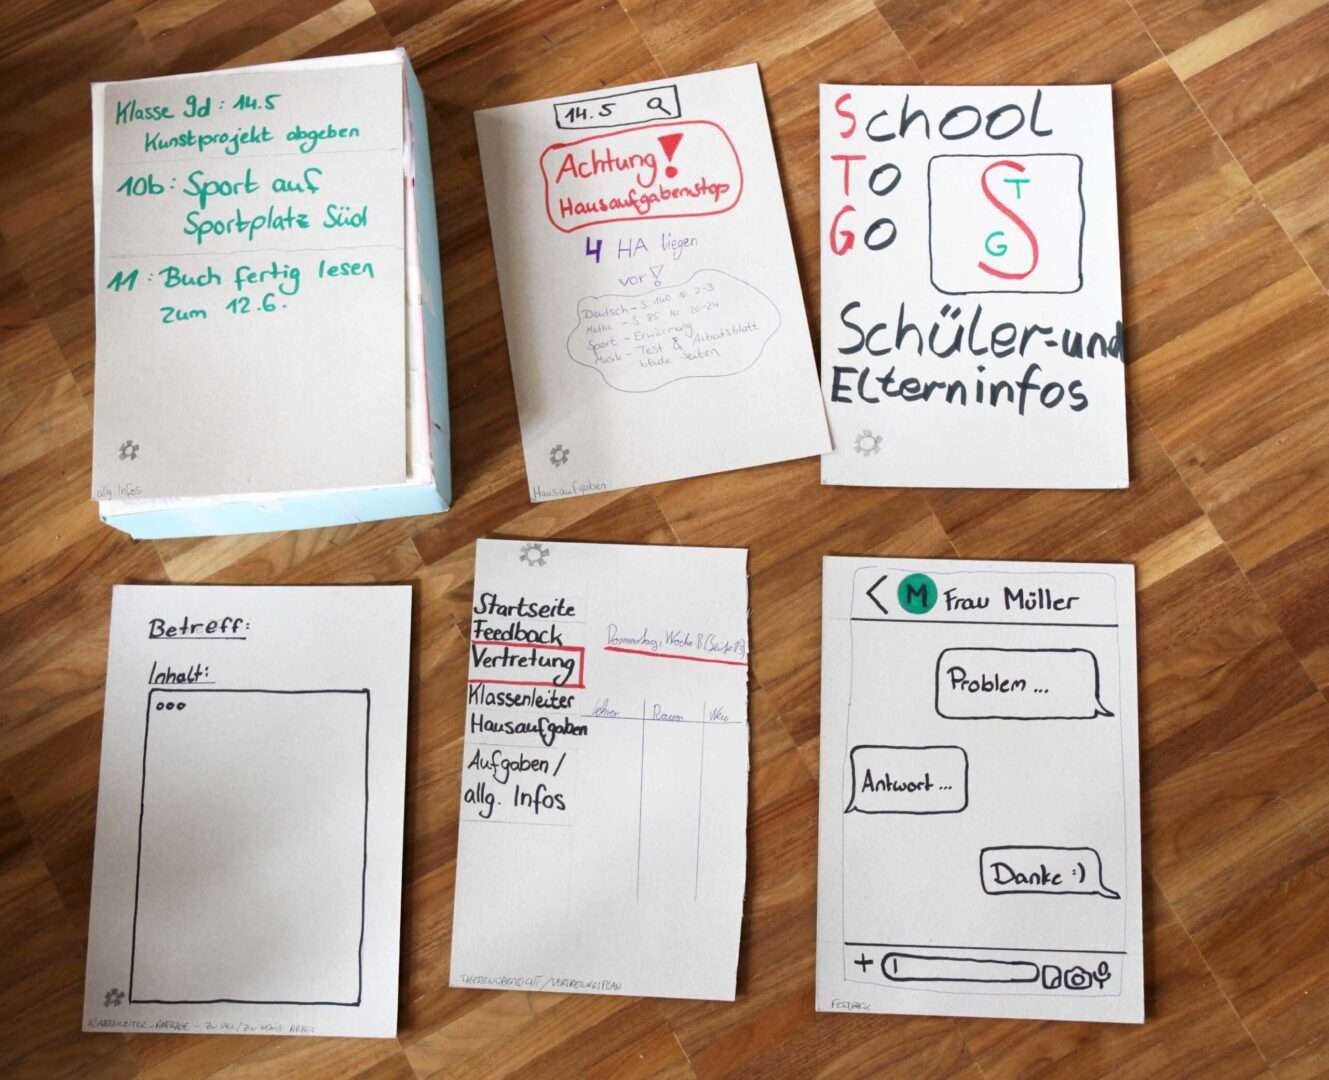 Klasse 9d: 14.5
Kunstprojekt abgeben
10b: Sport auf
Sportplatz Süd
11: Buch fertig lesen
zum 12.6.
allg. Infos
14.5
Achtung!
Hausaufgabenstop
4 HA liegen
vor!
Deutsch - S. 140 Nr. 2-3
Mathe - S. 85 Nr. 20-24
Sport - Erwärmung
Musik - Test & Arbeitsblatt
beide Seiten
Hausaufgaben
School
To
Go
S T G
Schüler- und
Elterninfos
Betreff:
Inhalt:
Startseite
Feedback
Vertretung
Klassenleiter
Hausaufgaben
Aufgaben/
allg. Infos
Donnerstag, Woche B
Lehrer Raum Neu
THEMENÜBERSICHT/VERTRETUNGSPLAN
< M Frau Müller
Problem ...
Antwort ...
Danke :)
+
FEEDBACK